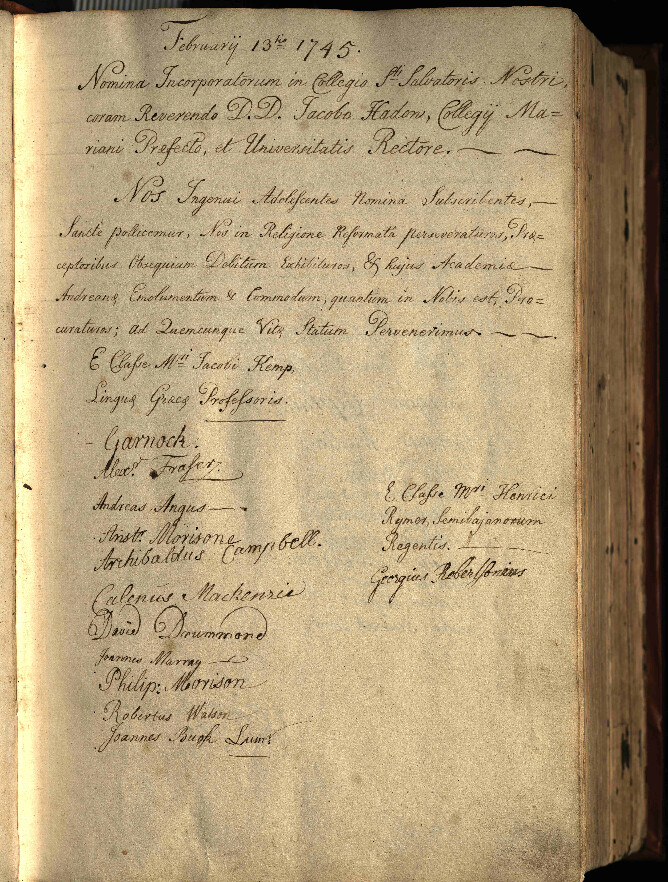 Februarij 13tio 1745.
Nomina Incorporatorum in Collegio Sti Salvatoris Nostri,
coram Reverendo D.D. Jacobo Hadow, Collegij Ma=
riani Prefecto, et Universitatis Rectore.
Nos Ingenui Adolescentes Nomina Subscribentes,
Sancte pollicemur, Nos in Religione Reformata perseveraturos, Præ=
ceptoribus Obsequium Debitum Exhibituros, & hujus Academiæ
Andreanæ Emolumentum & Commodum, quantum in Nobis est, Pro=
curaturos; ad Quemcunque Vitæ Statum Pervenerimus.
E Classe Mri Jacobi Kemp,
Linguæ Græcæ Professoris.
Garnock.
Alexr. Fraser.
Andreas Angus
Anstr. Morisone
Archibaldus Campbell.
Calenus Mackenzie
David Drummond
Joannes Murray
Philip: Morison
Robertus Watson
Joannes Bugh
E Classe Mri Henrici
Rymer, Semibajanorum
Regentis.
Georgius Robertsonus